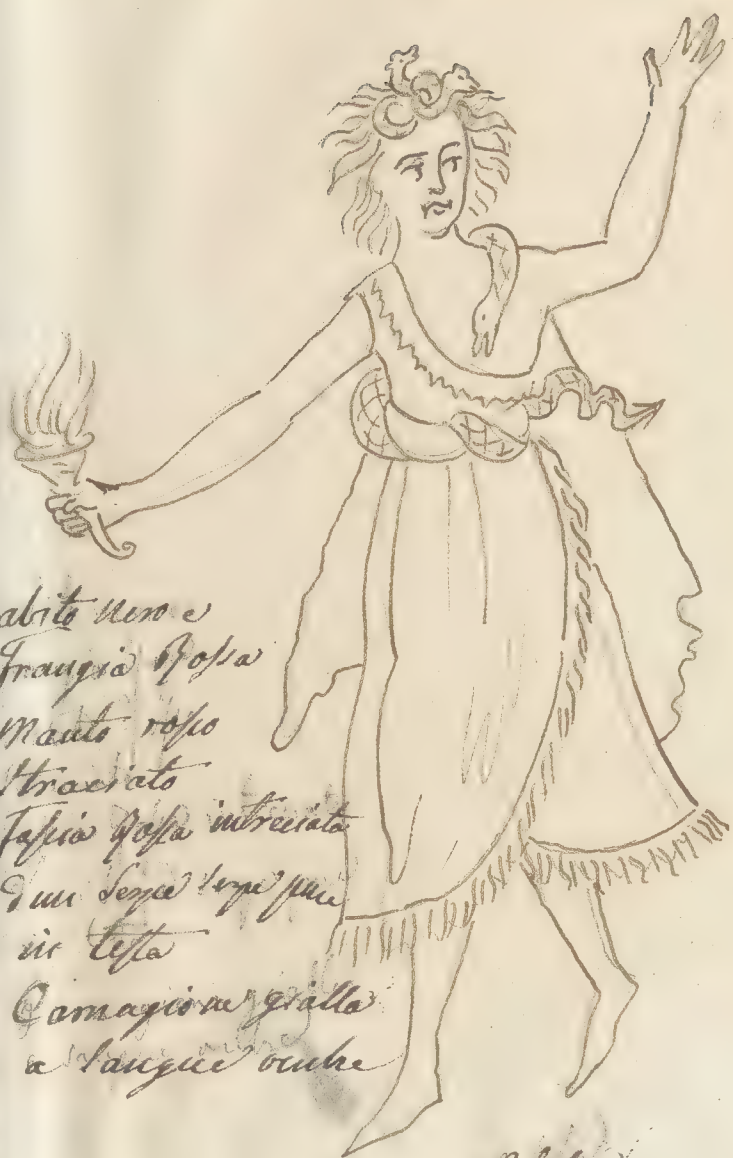 abito nero e
frangia Rossa
Manto rosso
straciato
fascia Rossa intreciata
d'un Serpe serpe pure
in testa
Carnagione gialla
a sangue